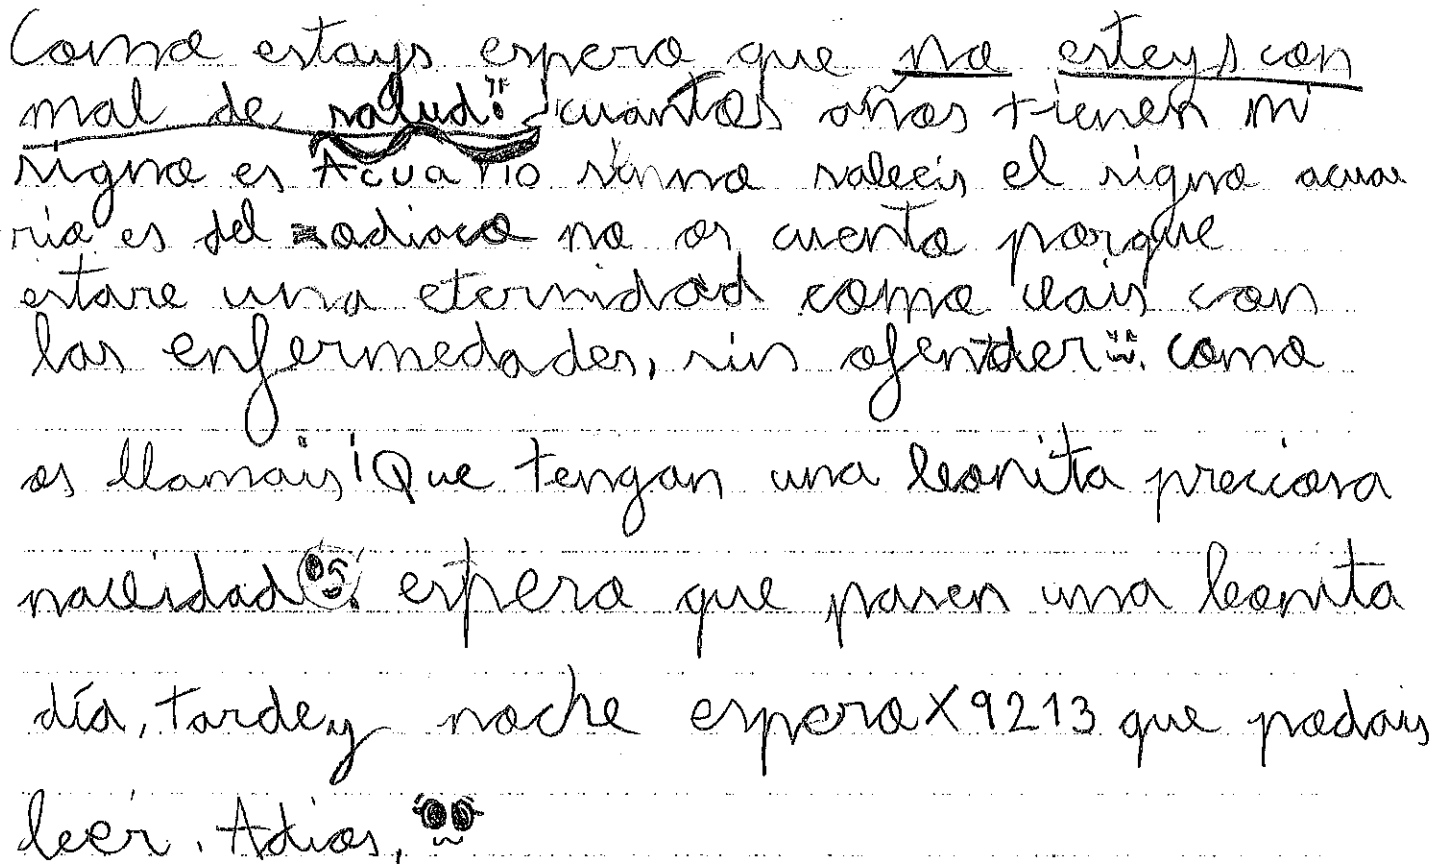 Como estays espero que no esteys con
mal de salud. cuantos años tienen mi
signo es Acuario sinno sabeis el signo acua
rio es del zodiaco no os cuento porque
estare una eternidad como vais con
las enfermedades, sin ofender. como
os llamais! Que tengan una bonita preciosa
navidad. espero que pasen una bonita
día, tarde y noche esperoX9213 que podais
leer. Adios,